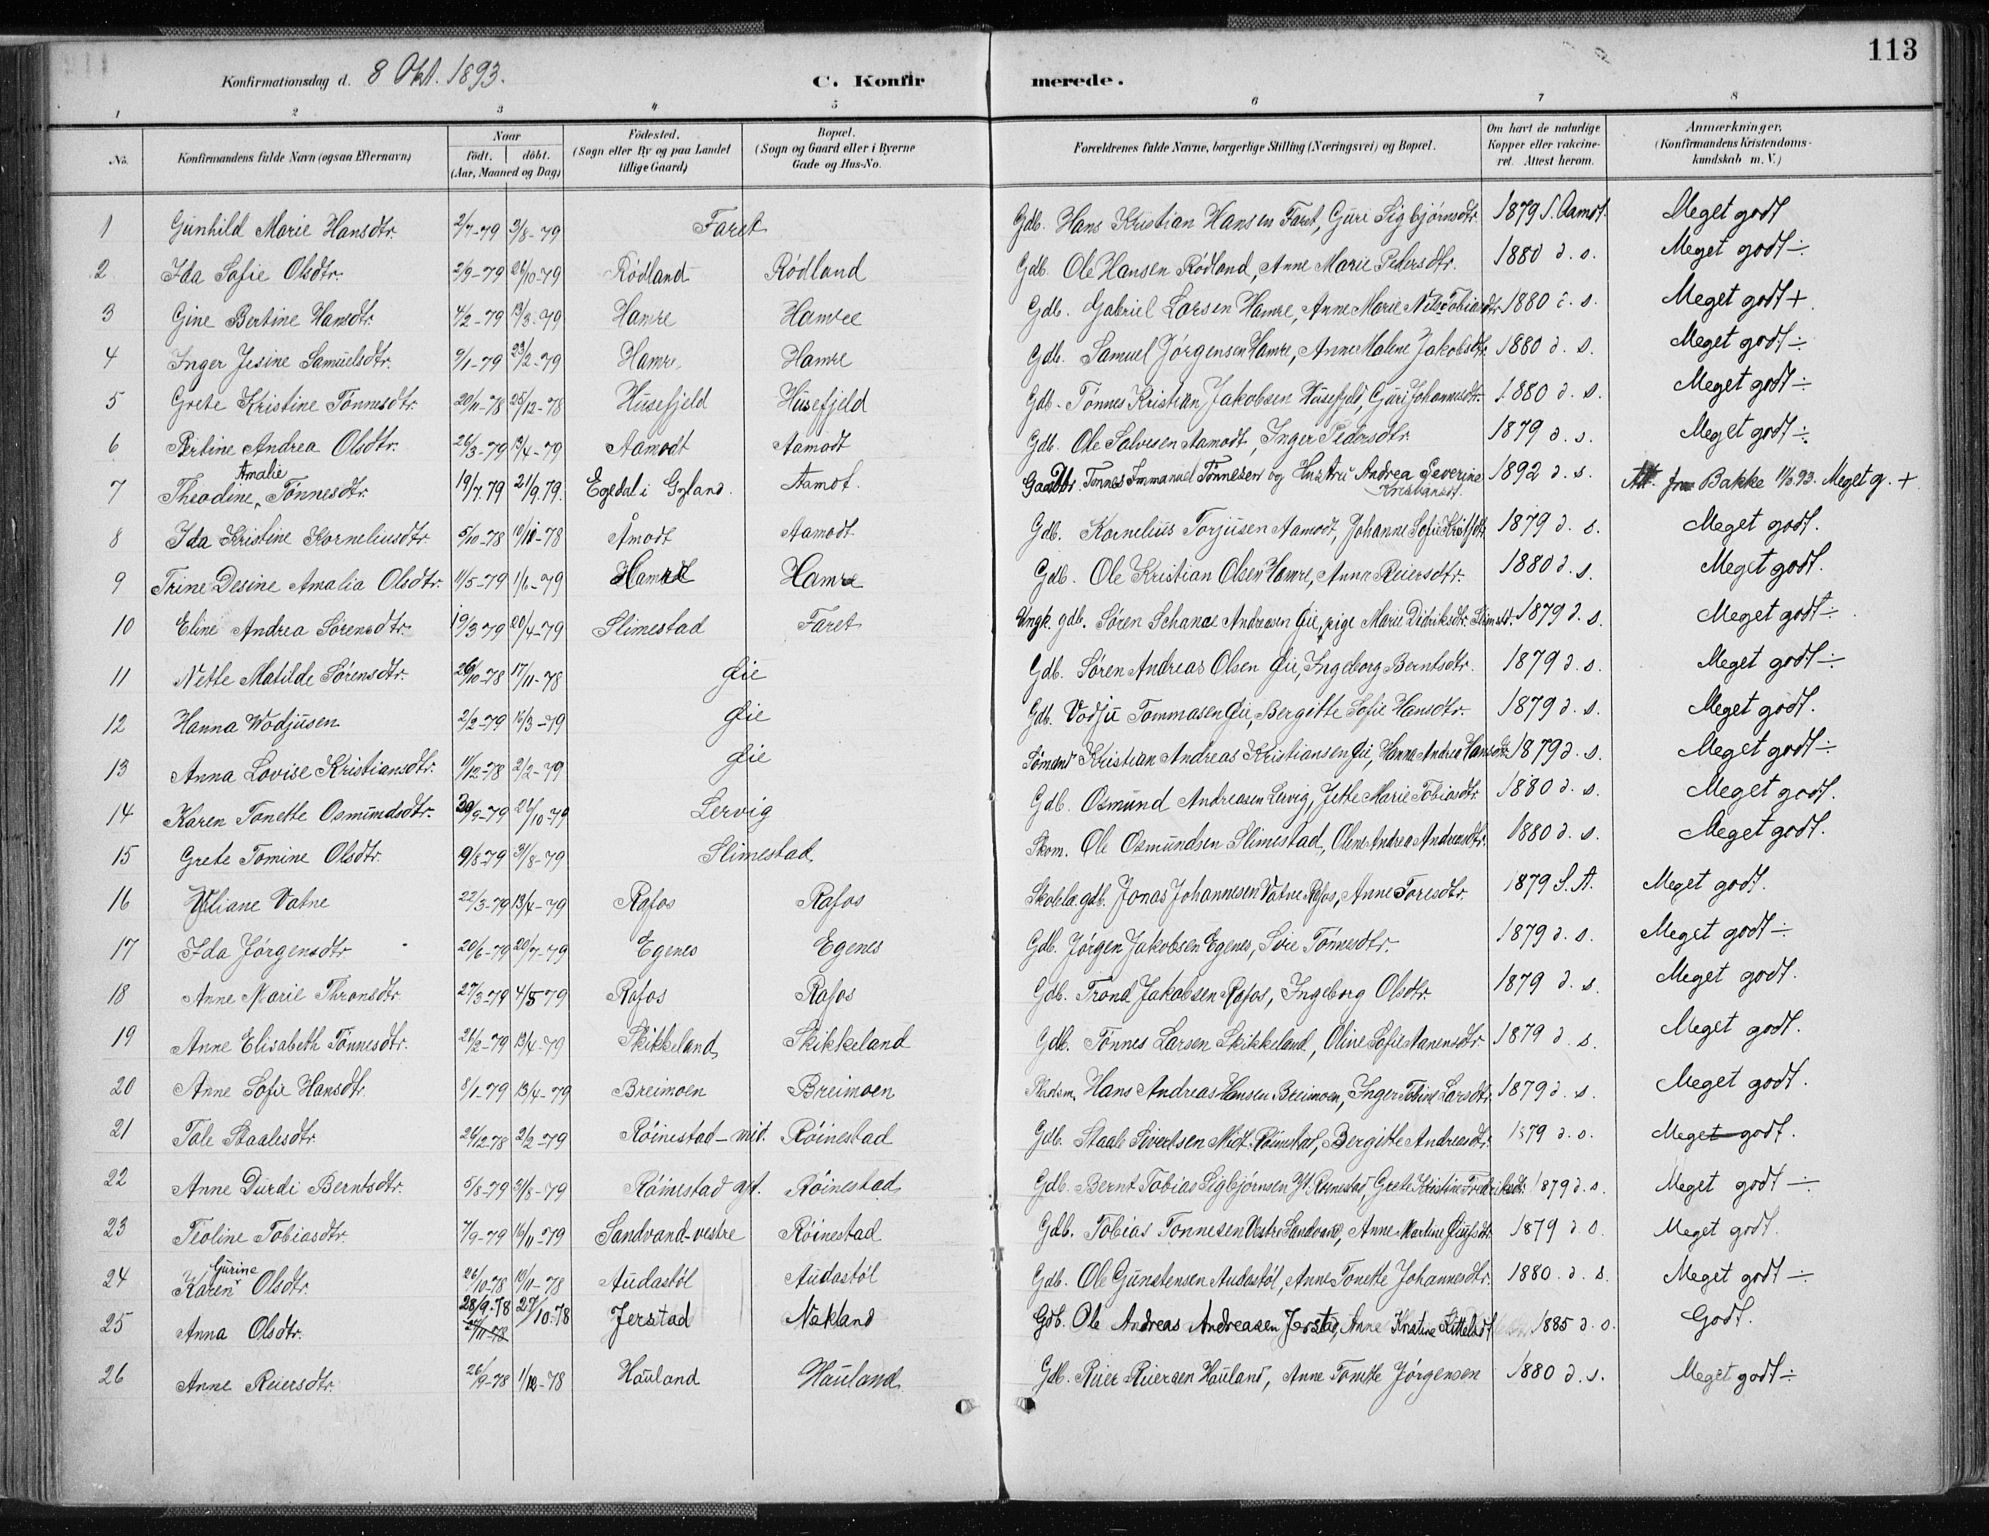 113
Konfirmationsdag d. 8 Okt. 1893.
C. Konfirmerede.
1 2 3 4 5 6 7 8
No. Konfirmandens fulde Navn (ogsaa Efternavn) Naar født. døbt. (Aar, Maaned og Dag) Fødested. (Sogn eller By og paa Landet tillige Gaard) Bopæl. (Sogn og Gaard eller i Byerne Gade og Hus-No. Forældrenes fulde Navne, borgerlige Stilling (Næringsvei) og Bopæl. Om havt de naturlige Kopper eller vakcineret. Attest herom. Anmærkninger. (Konfirmandens Kristendomskundskab m. V.)
1 Gunhild Marie Hansdtr. 2/7-79 3/8-79 Faret Gdb. Hans Kristian Hansen Faret, Guri Sigbjørnsdtr. 1879 S. Aamot. Meget godt
2 Ida Sofie Olsdtr. 2/9-79 26/10-79 Rødland Rødland Gdb. Ole Hansen Rødland, Anne Marie Pedersdtr. 1880 d. s. Meget godt ÷
3 Gine Bertine Hansdtr. 4/2-79 19/3-79 Hamre Hamre Gdb. Gabriel Larsen Hamre, Anne Marie Tobiasdtr 1880 d. s. Meget godt +
4 Inger Jesine Samuelsdtr. 9/1-79 23/2-79 Hamre Hamre Gdb. Samuel Jørgensen Hamre, Anne Malene Jakobsdtr. 1880 d. s. Meget godt ÷
5 Grete Kristine Tønnesdtr. 20/11-78 25/12-78 Husefjeld Husefjeld Gdb. Tønnes Kristian Jakobsen Husefjeld, Guri Johannesdtr. 1880 d. s. Meget godt ÷
6 Bertine Andrea Olsdtr. 26/3-79 13/4-79 Aamodt Aamodt Gdb. Ole Salvesen Aamodt, Inger Pedersdtr 1879 d. s. Meget godt ÷
7 Theodine Amalie Tønnesdtr. 19/7 79 21/9 79. Egedal i Gyland. Aamot. Gaardbr. Tønnes Immanuel Tønnesen og Hustru Andrea Severine Kristiansdt. 1892 d. s. Att. fra Bakke 11/8 93. Meget g. +
8 Ida Kristine Korneliusdtr. 5/10-78 10/11-78 Åmodt Aamodt Gdb. Kornelius Torjusen Aamodt, Johanne Sofie 1879 d. s. Meget godt.
9 Trine Desine Amalia Olsdtr. 11/5-79 1/6-79 Hamre Hamre Gdb. Ole Kristian Olsen Hamre, Anne Reiersdtr. 1880 d. s. Meget godt.
10 Eline Andrea Sørensdtr. 19/3 79 20/4-79 Slimestad Faret Ungk. gdb. Søren Schanæ Andreasen Øie, pige Marie Didriksdtr. Slimest. 1879 d. s. Meget godt ÷
11 Nette Matilde Sørensdtr. 26/10-78 17/11-78 Øie Gdb. Søren Andreas Olsen Øie, Ingeborg Berntsdtr. 1879 d. s. Meget godt ÷
12 Hanna Wodjusen 2/2-79 16/3-79 Øie Gdb. Vodju Tommasen Øie, Bergitte Sofie Hansdtr. 1879 d. s. Meget godt.
13 Anna Lovise Kristiansdtr. 11/12-78 2/2-79 Øie Sømand Kristian Andreas Kristiansen Øie, Hanna Andrea Hansdtr 1879 d. s. Meget godt ÷
14 Karen Tonette Osmundsdtr. 30/9-79 26/10-79 Lervig Gdb. Osmund Andreasen Lervig, Jette Marie Tobiasdtr 1880 d. s. Meget godt.
15 Grete Tomine Olsdtr. 9/8-79 31/8-79 Slimestad Skom. Ole Osmundsen Slimestad, Oline Andrea Andreasdtr. 1880 d. s. Meget godt.
16 Vatne 22/3-79 13/4-79 Rafos Rafos Skolelæ. gdb. Jonas Johannesen Vatne Rafos, Anne Toresdtr. 1879 S. A. Meget godt.
17 Ida Jørgensdtr 20/6-79 20/7-79 Egenes Egenes Gdb. Jørgen Jakobsen Egenes, Sire Tønnesdtr. 1879 d. s. Meget godt ÷
18 Anne Marie Thronsdtr. 27/3-79 4/5 79 Rafos Rafos Gdb. Trond Jakobsen Rafos, Ingeborg Olsdtr. 1879 d. s. Meget godt.
19 Anne Elisabeth Tønnesdtr. 26/2-79 13/4-79 Skikkeland Skikkeland Gdb. Tønnes Larsen Skikkeland, Oline Sofie Nanensdtr 1879 d. s. Meget godt.
20 Anne Sofie Hansdtr. 8/1-79 13/4-79 Breimoen Breimoen Hans Andreas Hansen Breimoen, Inger Tobine Larsdtr. 1879 d. s. Meget godt.
21 Tale Staalesdtr. 26/12 78 2/2-79 Røinestad-mid. Røinestad Gdb. Staale Sivertsen Midt-Røinestad, Bergitte Andreasdtr. 1879 d. s. Meget godt.
22 Anne Durdi Berntsdtr. 5/8-79 31/8-79 Røinestad yt. Røinestad Gdb. Bernt Tobias Sigbjørnsen Yt. Reinestad, Grete Kristine Fredriksdt. 1879 d. s. Meget godt ÷
23 Teoline Tobiasdtr 7/9-79 16/11-79 Sandvand-vestre Røinestad Gdb. Tobias Tønnesen Vestre Sandvand, Anne Martine 1879 d. s. Meget godt.
24 Karen Gurine Olsdtr. 26/10-78 10/11-78 Audastøl Audastøl Gdb. Ole Gunstensen Audastøl, Anne Tonette Johannesdtr. 1880. d. s. Meget godt ÷
25 Anna Olsdtr. 28/9-78 27/10-78 Jerstad Nekland Gdb. Ole Andreas Andreasen Jerstad, Anne 1885 d. s. Godt.
26 Anne Reiersdtr. 26/9-78 1/12-78 Hauland Hauland Gdb. Reier Reiersen Hauland, Anne Tonette Jørgensen 1880 d. s. Meget godt ÷